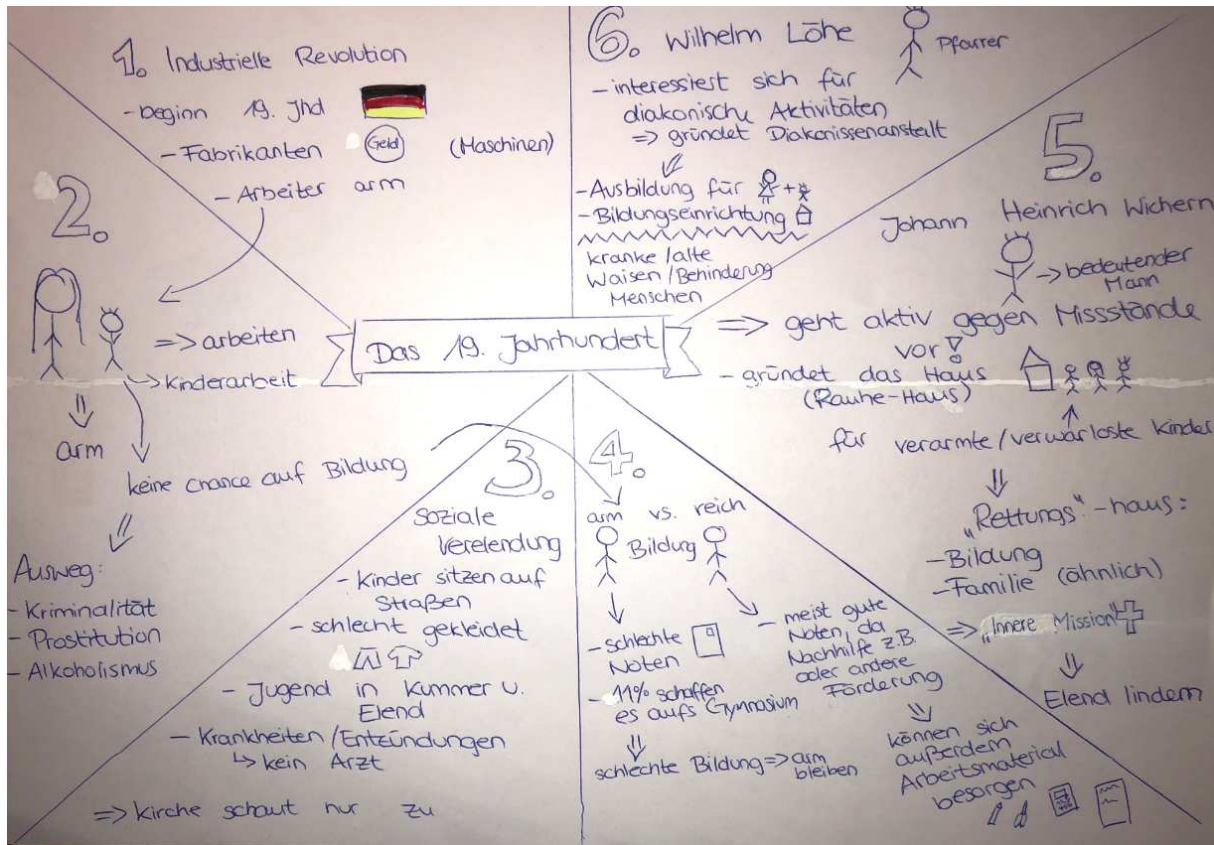 1. Industrielle Revolution
- beginn 19. Jhd
- Fabrikanten Geld (Maschinen)
- Arbeiter arm
2.
=> arbeiten
-> Kinderarbeit
arm
keine Chance auf Bildung
Ausweg:
- Kriminalität
- Prostitution
- Alkoholismus
Das 19. Jahrhundert
3.
Soziale
Verelendung
- Kinder sitzen auf
Straßen
- schlecht gekleidet
- Jugend in Kummer u.
Elend
- Krankheiten / Entzündungen
↳ kein Arzt
=> Kirche schaut nur zu
4.
arm vs. reich
Bildung
- schlechte
Noten
- 11% schaffen
es aufs Gymnasium
schlechte Bildung => arm
bleiben
- meist gute
Noten, da
Nachhilfe z.B.
oder andere
Förderung
können sich
außerdem
Arbeitsmaterial
besorgen
5.
Johann Heinrich Wichern
-> bedeutender
Mann
=> geht aktiv gegen Missstände
vor!
- gründet das Haus
(Rauhe-Haus)
für verarmte/verwarloste Kinder
„Rettungs"-haus:
- Bildung
- Familie (ähnlich)
=> „Innere Mission
Elend lindern
6. Wilhelm Löhe
Pfarrer
- interessiert sich für
diakonische Aktivitäten
=> gründet Diakonissenanstalt
- Ausbildung für +
- Bildungseinrichtung
kranke / alte
Waisen / Behinderung
Menschen